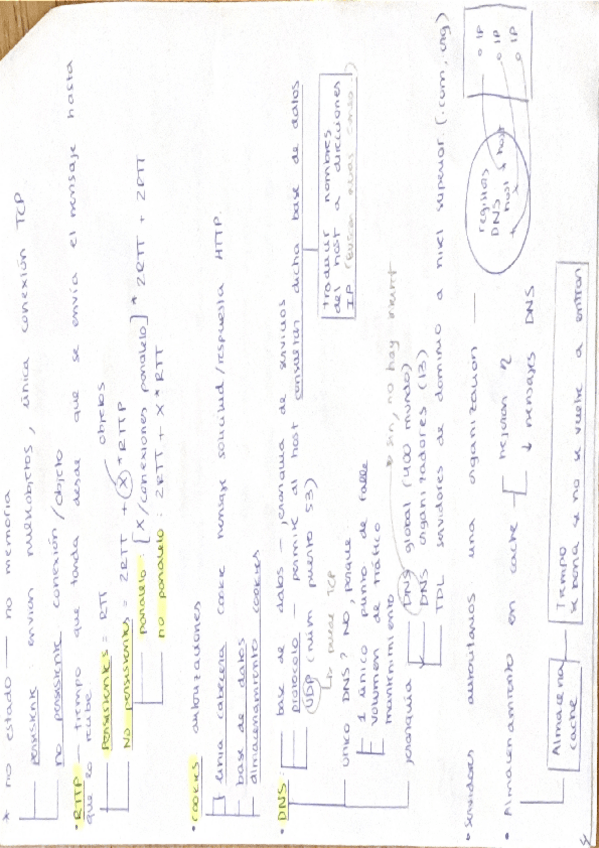 * no estado — no memoria
persistente: envian multiobjetos, única conexión TCP
no persistente conexión/objeto
• RTTP — tiempo que tarda desde que se envía el mensaje hasta
que lo recibe.
Persistentes = RTT objetos
No persistentes = 2RTT + X * RTTP
paralelo: [X/conexiones paralelo] * 2RTT + 2RTT
no paralelo: 2RTT + X * RTT
• cookies autorizaciones
linea cabecera cookie mensaje solicitud/respuesta HTTP.
base de datos
almacenamiento cookies
• DNS: base de datos — jerarquia de servidores
protocolo — permite al host consultar dicha base de datos
traducir nombres
del host a direcciones
IP
UDP (núm puerto 53)
TCP
único DNS? NO, porque
1 único punto de fallo
volumen de tráfico
mantenimiento
sin, no hay
jerarquía DNS global (400 mundo)
DNS organizadores (13)
TDL servidores de dominio a nivel superior (.com, .org)
• Servidores autoritarios una organización —
registros
DNS
host a host
o IP
o IP
o IP
• Almacenamiento en cache
mejoran
↓ mensajes DNS
Almacena
cache
Tiempo
se borra si no se vuelve a entrar